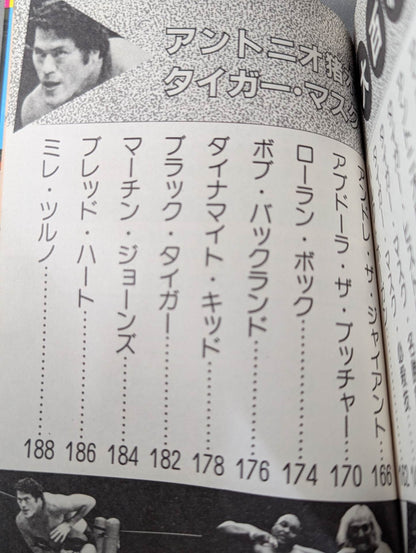 アントニオ猪木
タイガー・マスク
アンドレ・ザ・ジャイアント……166
アブドーラ・ザ・ブッチャー……170
ローラン・ボック……174
ボブ・バックランド……176
ダイナマイト・キッド……178
ブラック・タイガー……182
マーチン・ジョーンズ……184
ブレッド・ハート……186
ミレ・ツルノ……188